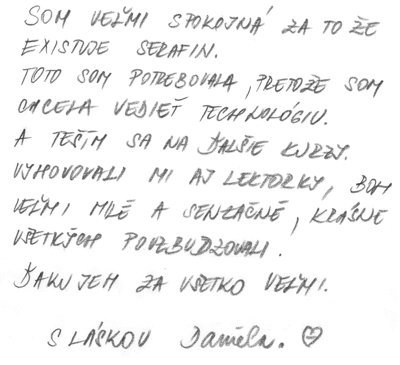 SOM VEĽMI SPOKOJNÁ ZA TO ŽE
EXISTUJE SERAFIN.
TOTO SOM POTREBOVALA, PRETOŽE SOM
CHCELA VEDIEŤ TECHNOLÓGIU.
A TEŠÍM SA NA ĎALŠIE KURZY.
VYHOVOVALI MI AJ LEKTORKY, BOLI
VEĽMI MILÉ A SENZAČNÉ, KRÁSNE
VŠETKÝCH POVZBUDZOVALI.
ĎAKUJEM ZA VŠETKO VEĽMI.
S LÁSKOU Daniela. ♡